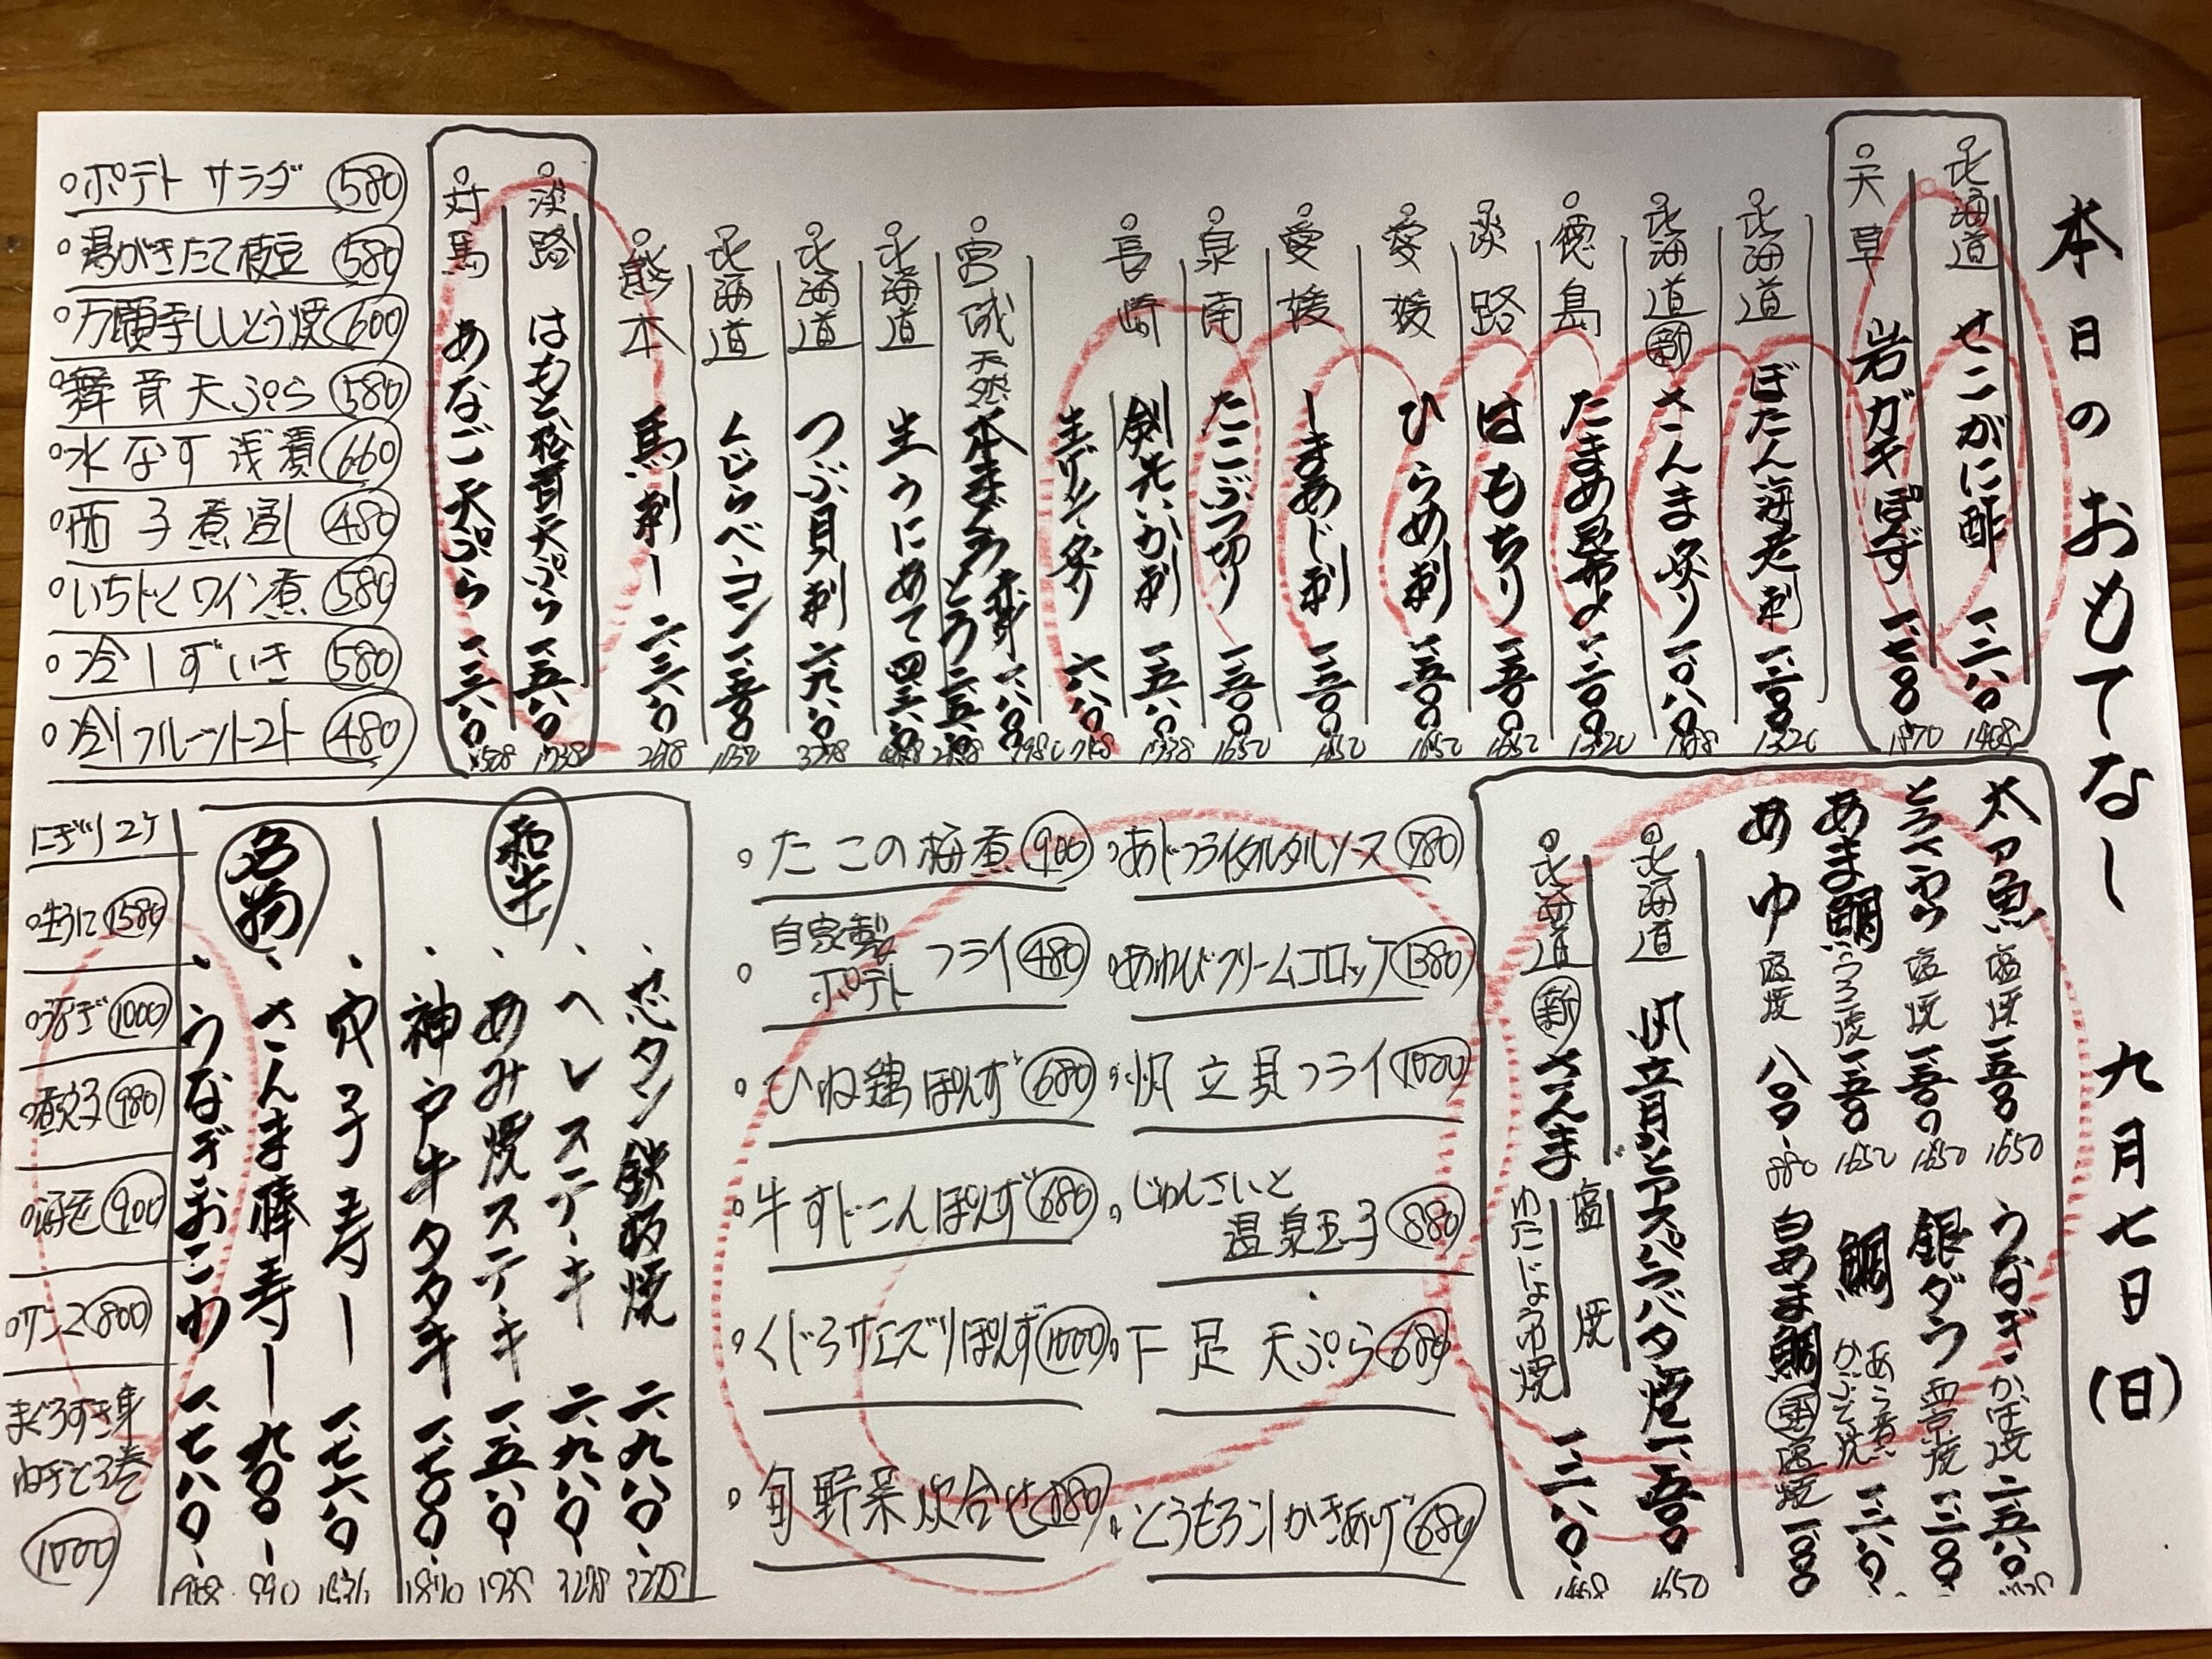 本日のおもてなし 九月七日(日)
北海道 せこがに酢 一、二八〇 1408
天草 岩ガキぽんず 一、七〇〇 1870
北海道 ぼたん海老刺 一、二〇〇 1320
北海道 新 さんま炙り 一、〇八〇 1188
徳島 たまめ昆布〆 一、二〇〇 1320
淡路 はもちり 一、五〇〇 1650
愛媛 ひらめ刺 一、五〇〇 1650
愛媛 しまあじ刺 一、五〇〇 1650
泉南 たこぶつ切り 一、五〇〇 1650
長崎 剣先いか刺 一、五八〇 1738
生ゲソ炙り 六八〇 748
宮城 天然 本まぐろ 赤身 一、八〇〇 1980
とろ
北海道 生うにあて
北海道 つぶ貝刺 二、九八〇 3278
北海道 くじらベーコン 一、五〇〇 1650
熊本 馬刺し 二、三八〇 2618
淡路 はもと松茸天ぷら 一、五八〇 1738
対馬 あなご天ぷら
ポテトサラダ 580
湯がきたて枝豆 580
万願寺ししとう焼 600
舞茸天ぷら 580
水なす浅漬 660
茄子煮浸し 480
いちじくワイン煮 580
冷しずいき 580
冷しフルーツトマト 480
太刀魚 塩焼 一、五〇〇 1650
とろさわら 塩焼 一、五〇〇 1650
あま鯛 うろこ焼 一、五〇〇 1650
あゆ 塩焼 八〇〇 880
うなぎ かば焼 二、五八〇
銀ダラ 西京焼
鯛 あら煮 かぶと焼
白あま鯛 塩焼
北海道 帆立貝とアスパラバター焼 一、五〇〇 1650
北海道 新 さんま 塩焼 わたじょうゆ焼 一、二八〇
たこの梅煮 900
自家製ポテトフライ 480
ひね鶏ぽんず 680
牛すじこんぽんず 680
くじらサエズリぽんず 1000
旬野菜炊合せ
あじフライタルタルソース 780
あわびクリームコロッケ 1380
帆立貝フライ 1000
じゅんさいと温泉玉子 880
下足天ぷら 680
とうもろこしかきあげ 680
和牛
芯タン鉄板焼 二、九八〇 3278
ヘレステーキ 二、九八〇 3278
あみ焼ステーキ 一、五八〇 1738
神戸牛タタキ 一、七〇〇 1870
名物
穴子寿し 一、七六〇 1936
さんま棒寿し 九〇〇 990
うなぎおこわ 一、七八〇 1958
にぎり2ケ
生うに 1580
うなぎ 1000
煮穴子 980
海老 900
サンマ 800
まぐろすき身
ねぎとろ巻
1000